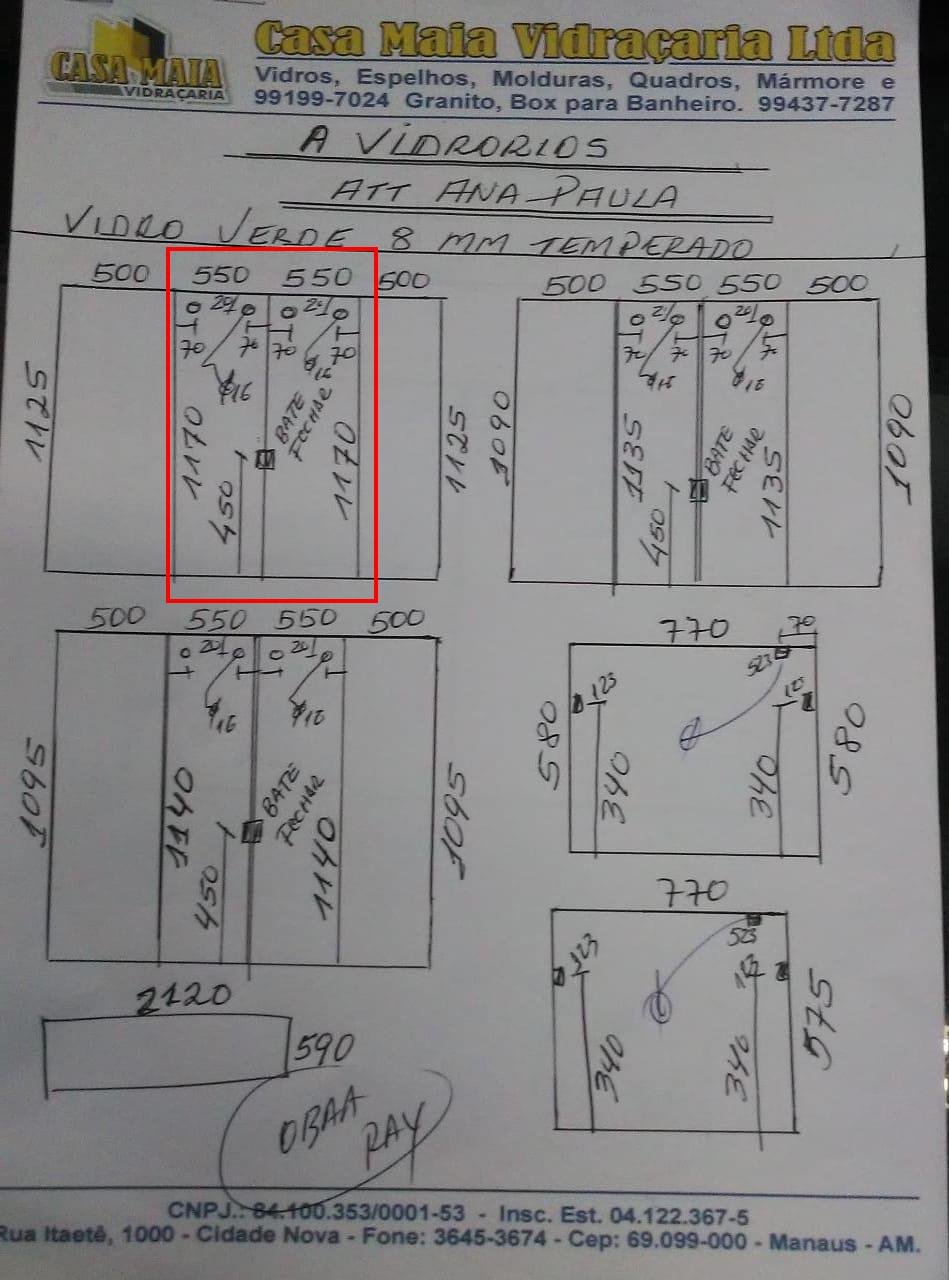 CASA MAIA
VIDRAÇARIA
Casa Maia Vidraçaria Ltda
Vidros, Espelhos, Molduras, Quadros, Mármore e
99199-7024 Granito, Box para Banheiro. 99437-7287
A VIDRORIOS
ATT ANA PAULA
VIDRO VERDE 8 MM TEMPERADO
500 550 550 500
1125
20/ 20/
70 70 70 70
Ø16 Ø16
1170
450
BATE
FECHAR
1170
1125
500 550 550 500
1090
2/ 20/
70 70 70 70
Ø16 Ø16
1135
450
BATE
FECHAR
1135
1090
500 550 550 500
1095
20/ 20/
Ø16 Ø16
1140
450
BATE
FECHAR
1140
1095
770 70
523
580
123
340
340
580
770
523
123
123
340
340
575
2120
590
OBAA
RAY
CNPJ.: 84.100.353/0001-53 - Insc. Est. 04.122.367-5
Rua Itaetê, 1000 - Cidade Nova - Fone: 3645-3674 - Cep: 69.099-000 - Manaus - AM.